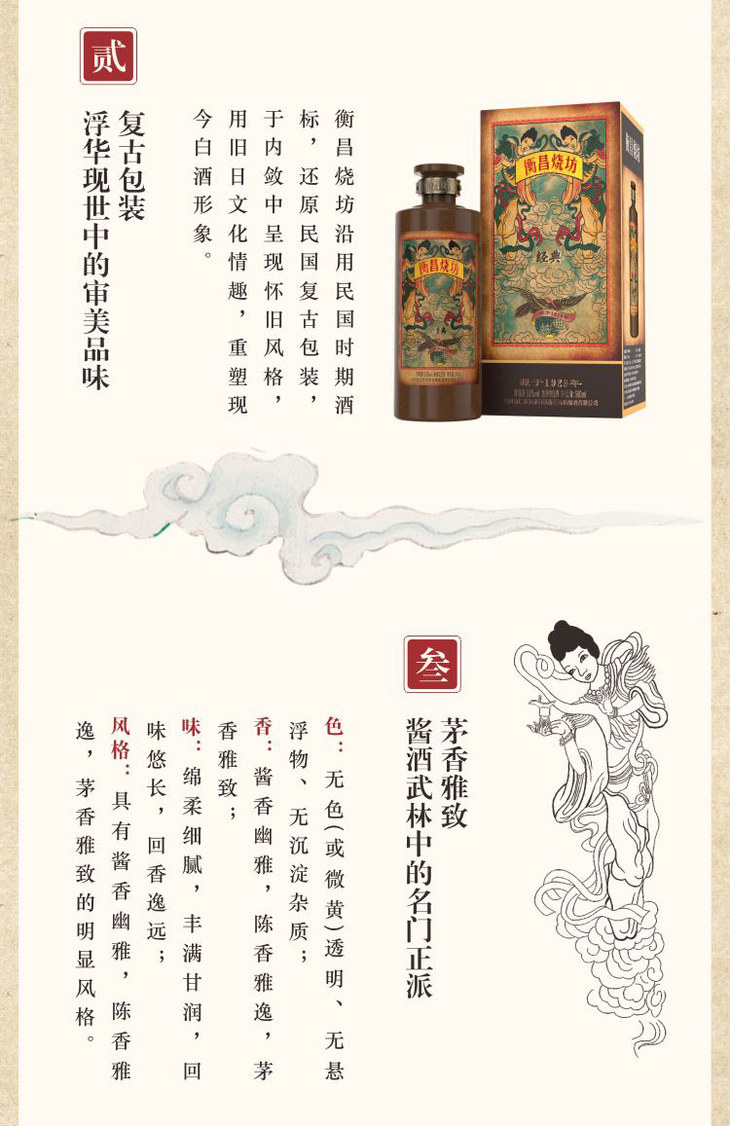 贰
复古包装
浮华现世中的审美品味
衡昌烧坊沿用民国时期酒
标，还原民国复古包装，
于内敛中呈现怀旧风格，
用旧日文化情趣，重塑现
今白酒形象。
衡昌烧坊
经典
源于1929年
衡昌烧坊
衡昌烧坊
叁
茅香雅致
酱酒武林中的名门正派
色：无色(或微黄)透明、无悬
浮物、无沉淀杂质；
香：酱香幽雅，陈香雅逸，茅
香雅致；
味：绵柔细腻，丰满甘润，回
味悠长，回香逸远；
风格：具有酱香幽雅，陈香雅
逸，茅香雅致的明显风格。